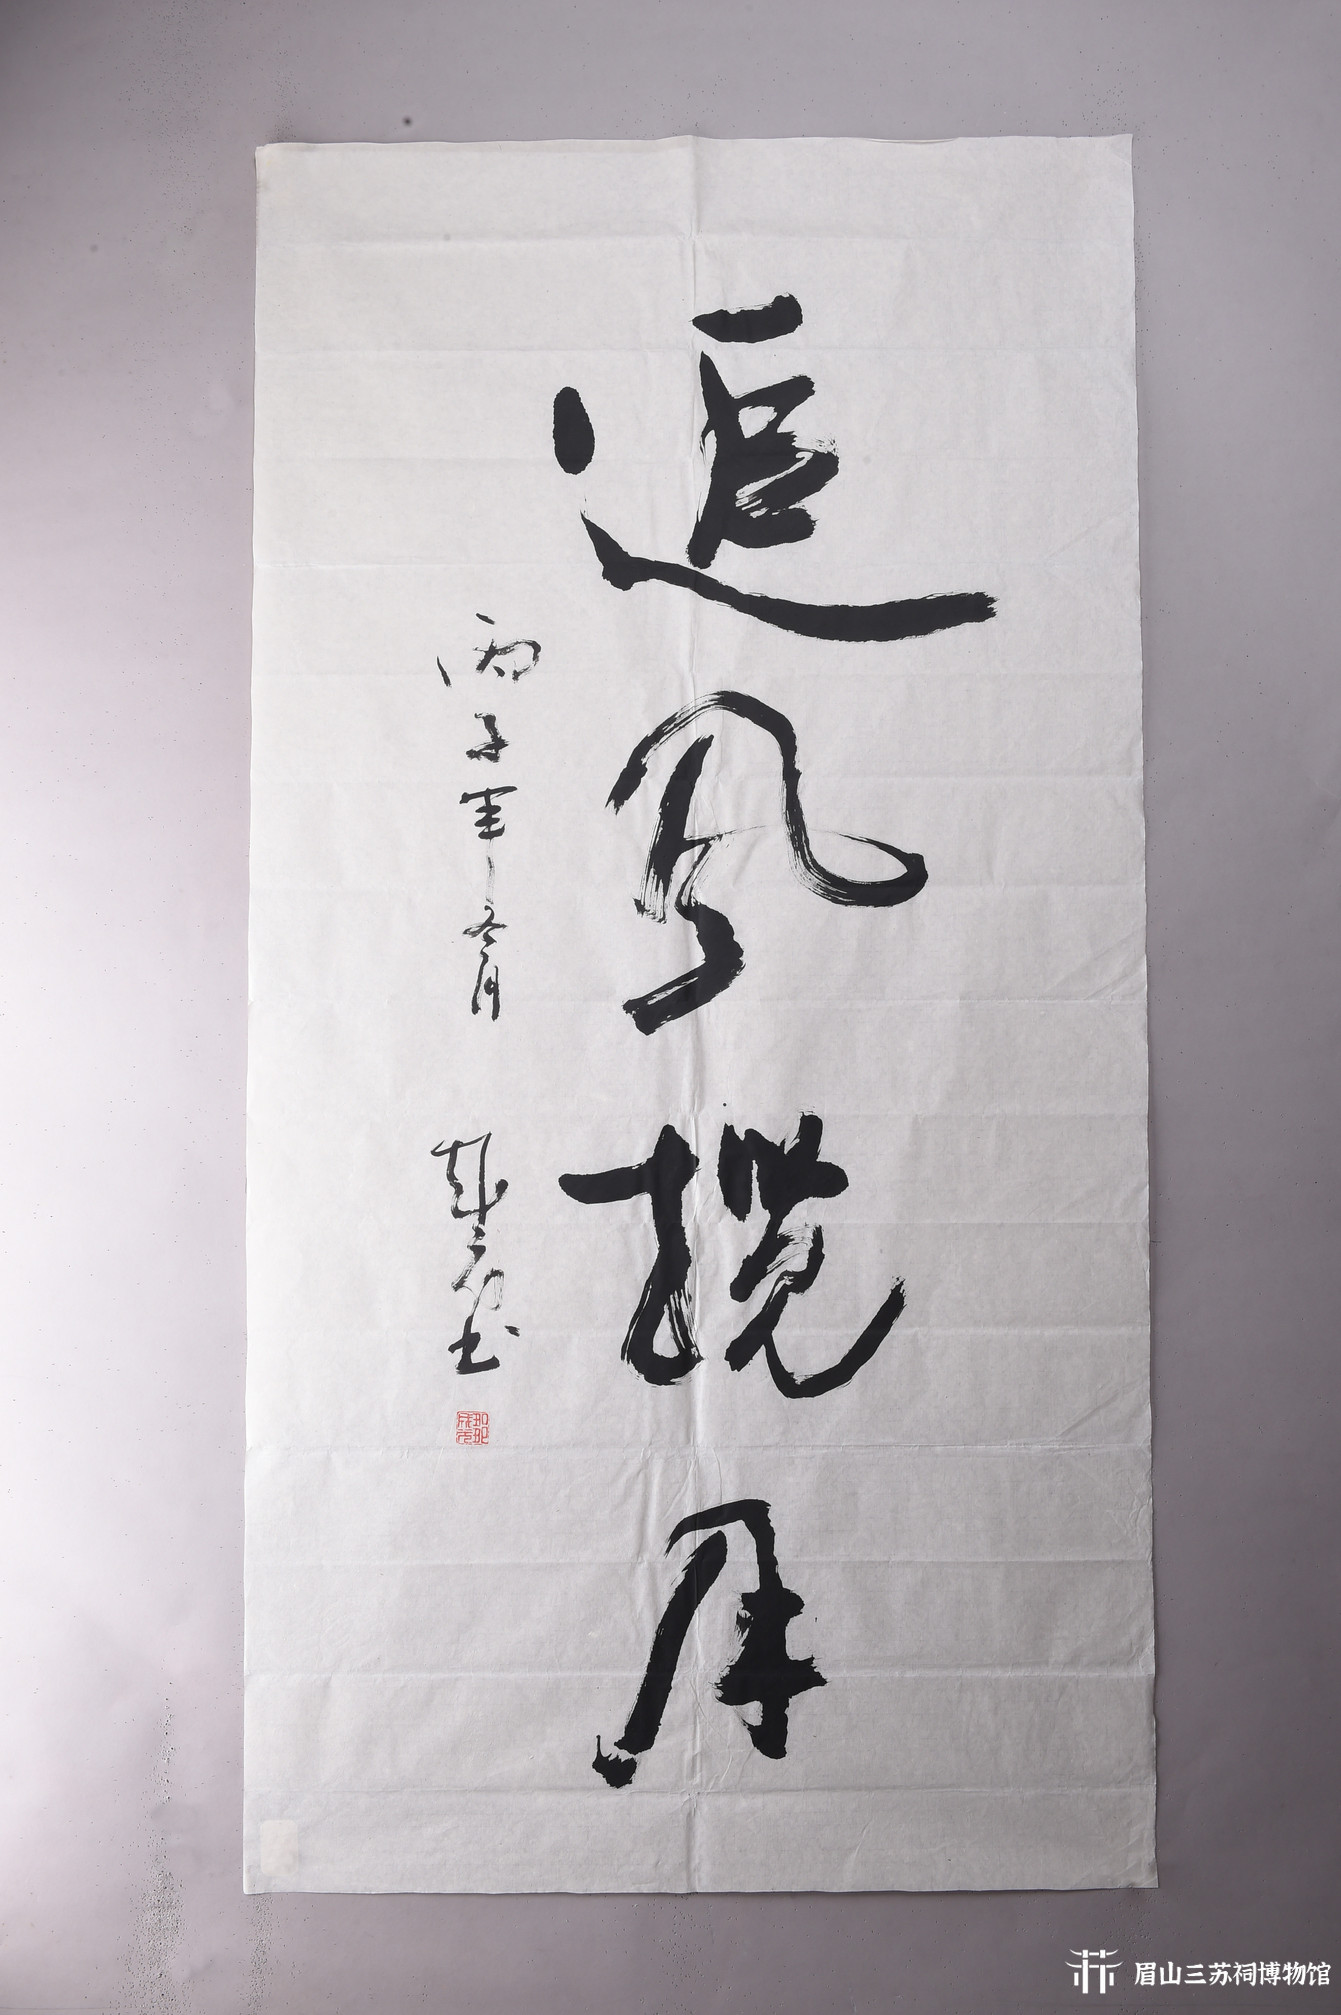 追风揽月
丙子年冬月
书
眉山三苏祠博物馆